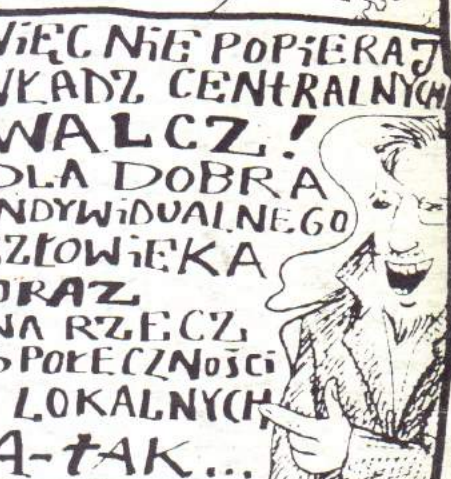 WiĘC NiE POPiERAJ
WŁADZ CENtRALNYCH
WALCZ!
DLA DOBRA
INDYWiDUALNEGO
CZŁOWiEKA
ORAZ
NA RZECZ
SPOŁECZNOści
LOKALNYCH
A-tAK...